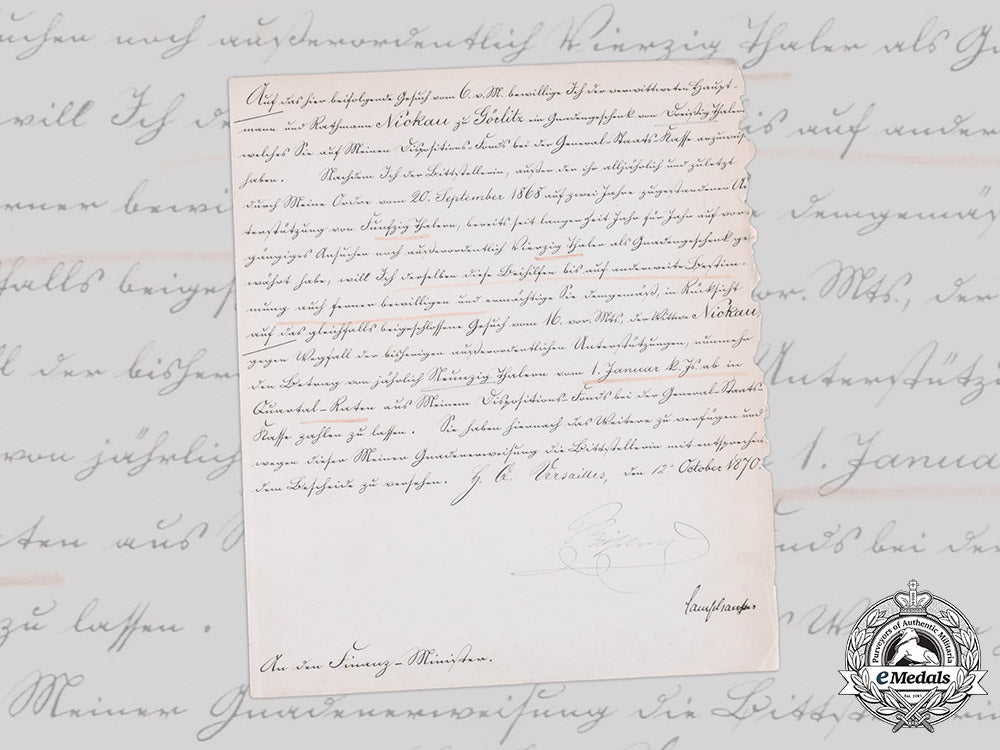 Auf das hier beifolgende Gesuch vom 6. v. M. bewillige Ich der verwittweten Haupt-
mann und Rathmann Nickau zu Görlitz ein Gnadengeschenk von Dreißig Thalern
welches Sie auf Meinen Dispositions-Fonds bei der General-Staats-Kasse anzuweisen
haben. Nachdem Ich der Bittstellerin, außer der ihr alljährlich und zuletzt
durch Meine Ordre vom 20. September 1868 auf zwei Jahre zugestandenen
terstützung von Fünfzig Thalern, bereits seit langer Zeit Jahr für Jahr auf vor-
gängiges Ansuchen noch außerordentlich Vierzig Thaler als Gnadengeschenk ge-
währt habe, will Ich derselben diese Beihilfen bis auf anderweite Bestim-
mung auch ferner bewilligen und ermächtige Sie demgemäß, in Rücksicht
auf das gleichfalls beigeschlossene Gesuch vom 16. vor. Mts., der Wittwe Nickau,
gegen Wegfall der bisherigen außerordentlichen Unterstützungen, nunmehr
den Betrag von jährlich Neunzig Thalern vom 1. Januar k. Js. ab in
Quartal-Raten aus Meinem Dispositions-Fonds bei der General-Staats-
Kasse zahlen zu lassen. Sie haben hiernach das Weitere zu verfügen und
wegen dieser Meiner Gnadenerweisung die Bittstellerin mit entsprechen-
dem Bescheide zu versehen. H. Q. Versailles, den 12. October 1870.
Wilhelm
Camphausen
An den Finanz-Minister.
Purveyors of Authentic Militaria
eMedals